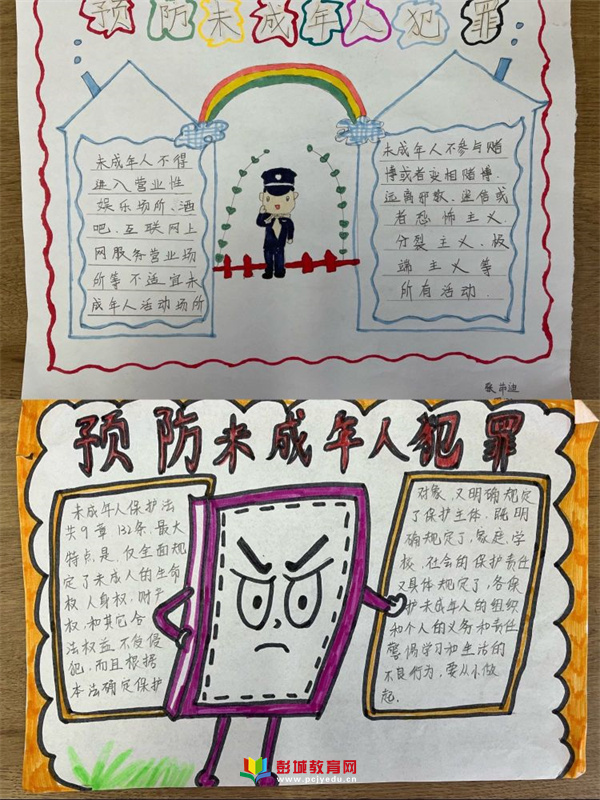 预防未成年人犯罪
未成年人不得
进入营业性
娱乐场所、酒
吧、互联网上
网服务营业场
所等不适宜未
成年人活动场所
未成年人不参与赌
博或者变相赌博.
远离邪教、迷信或
者恐怖主义.
分裂主义、极
端主义等
所有活动.
预防未成年人犯罪
未成年人保护法
共9章132条.最大
特点是.仅全面规
定了未成人的生命
权人身权.财产
权.和其它合
法权益不受侵
犯.而且根据
本法确定保护
对象.又明确规定
了保护主体.既明
确规定了.家庭.学
校.社会的保护责任
又具体规定了.各保
护未成年人的组织
和个人的义务和责任
警惕学习和生活的
不良行为,要从小做
起.
彭城教育网
www.pcjyedu.cn